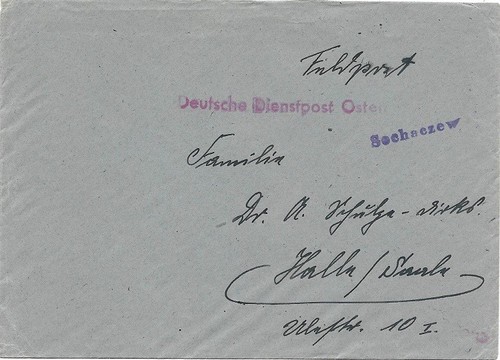 Feldpost
Deutsche Dienstpost Osten
Sochaczew
Familie
Dr. A. Schulze - Dirks.
Halle / Saale
Ulestr. 10 I.